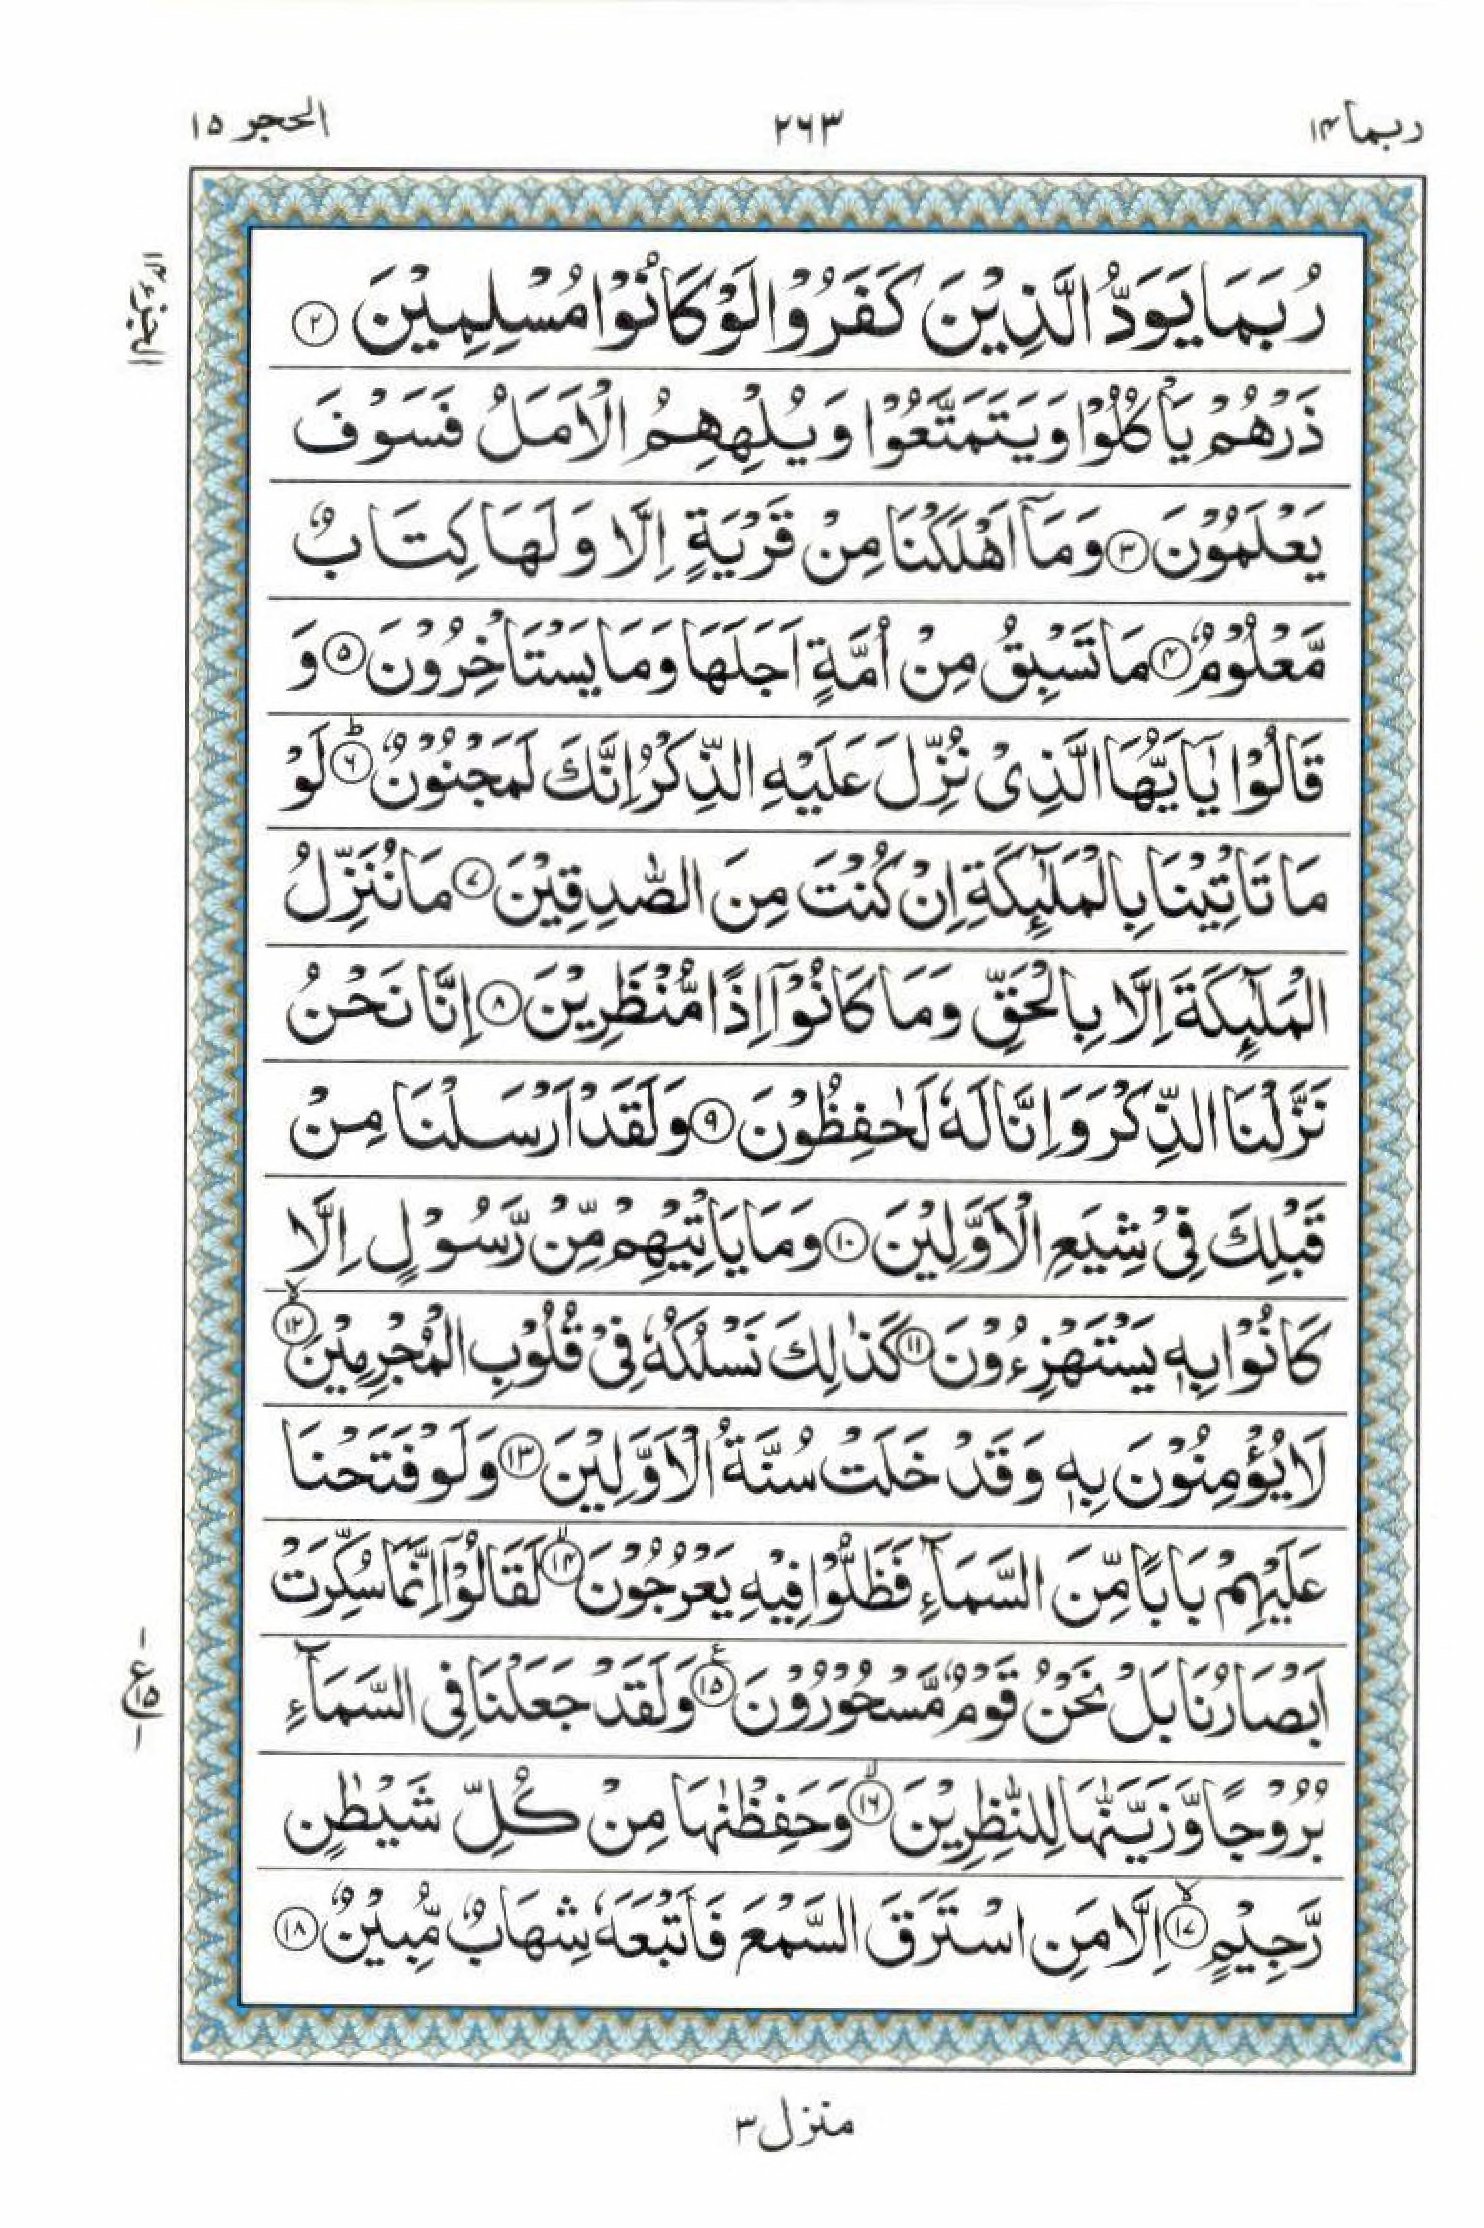 ربما ١٤
٢٦٣
الحجر ١٥
الجزء ١٤
رُبَمَا يَوَدُّ الَّذِيْنَ كَفَرُوْا لَوْ كَانُوْا مُسْلِمِيْنَ ﴿٢﴾
ذَرْهُمْ يَاْكُلُوْا وَيَتَمَتَّعُوْا وَيُلْهِهِمُ الْاَمَلُ فَسَوْفَ
يَعْلَمُوْنَ ﴿٣﴾ وَمَاۤ اَهْلَكْنَا مِنْ قَرْيَةٍ اِلَّا وَلَهَا كِتَابٌ
مَّعْلُوْمٌ ﴿٤﴾ مَا تَسْبِقُ مِنْ اُمَّةٍ اَجَلَهَا وَمَا يَسْتَاْخِرُوْنَ ﴿٥﴾ وَ
قَالُوْا يٰۤاَيُّهَا الَّذِىْ نُزِّلَ عَلَيْهِ الذِّكْرُ اِنَّكَ لَمَجْنُوْنٌ ﴿٦﴾ؕ لَوْ
مَا تَاْتِيْنَا بِالْمَلٰٓئِكَةِ اِنْ كُنْتَ مِنَ الصّٰدِقِيْنَ ﴿٧﴾ مَا نُنَزِّلُ
الْمَلٰٓئِكَةَ اِلَّا بِالْحَقِّ وَمَا كَانُوْۤا اِذًا مُّنْظَرِيْنَ ﴿٨﴾ اِنَّا نَحْنُ
نَزَّلْنَا الذِّكْرَ وَاِنَّا لَهٗ لَحٰفِظُوْنَ ﴿٩﴾ وَلَقَدْ اَرْسَلْنَا مِنْ
قَبْلِكَ فِىْ شِيَعِ الْاَوَّلِيْنَ ﴿١٠﴾ وَمَا يَاْتِيْهِمْ مِّنْ رَّسُوْلٍ اِلَّا
كَانُوْا بِهٖ يَسْتَهْزِءُوْنَ ﴿١١﴾ كَذٰلِكَ نَسْلُكُهٗ فِىْ قُلُوْبِ الْمُجْرِمِيْنَ ﴿١٢﴾ۙ
لَا يُؤْمِنُوْنَ بِهٖ وَقَدْ خَلَتْ سُنَّةُ الْاَوَّلِيْنَ ﴿١٣﴾ وَلَوْ فَتَحْنَا
عَلَيْهِمْ بَابًا مِّنَ السَّمَآءِ فَظَلُّوْا فِيْهِ يَعْرُجُوْنَ ﴿١٤﴾ۙ لَقَالُوْۤا اِنَّمَا سُكِّرَتْ
اَبْصَارُنَا بَلْ نَحْنُ قَوْمٌ مَّسْحُوْرُوْنَ ﴿١٥﴾ وَلَقَدْ جَعَلْنَا فِى السَّمَآءِ
ع
١٥
بُرُوْجًا وَّزَيَّنّٰهَا لِلنّٰظِرِيْنَ ﴿١٦﴾ۙ وَحَفِظْنٰهَا مِنْ كُلِّ شَيْطٰنٍ
رَّجِيْمٍ ﴿١٧﴾ۙ اِلَّا مَنِ اسْتَرَقَ السَّمْعَ فَاَتْبَعَهٗ شِهَابٌ مُّبِيْنٌ ﴿١٨﴾
منزل ٣